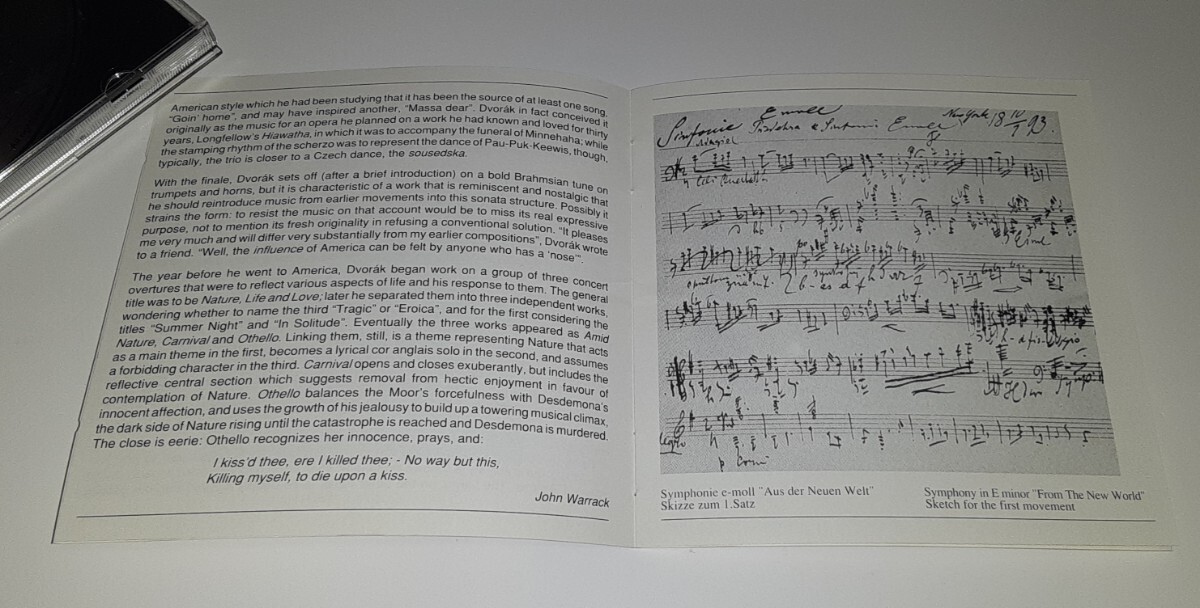 American style which he had been studying that it has been the source of at least one song,
"Goin' home", and may have inspired another, "Massa dear". Dvořák in fact conceived it
originally as the music for an opera he planned on a work he had known and loved for thirty
years, Longfellow's Hiawatha, in which it was to accompany the funeral of Minnehaha; while
the stamping rhythm of the scherzo was to represent the dance of Pau-Puk-Keewis, though,
typically, the trio is closer to a Czech dance, the sousedska.
With the finale, Dvořák sets off (after a brief introduction) on a bold Brahmsian tune on
trumpets and horns, but it is characteristic of a work that is reminiscent and nostalgic that
he should reintroduce music from earlier movements into this sonata structure. Possibly it
strains the form: to resist the music on that account would be to miss its real expressive
purpose, not to mention its fresh originality in refusing a conventional solution. "It pleases
me very much and will differ very substantially from my earlier compositions", Dvořák wrote
to a friend. "Well, the influence of America can be felt by anyone who has a 'nose'".
The year before he went to America, Dvořák began work on a group of three concert
overtures that were to reflect various aspects of life and his response to them. The general
title was to be Nature, Life and Love; later he separated them into three independent works,
wondering whether to name the third "Tragic" or "Eroica", and for the first considering the
titles "Summer Night" and "In Solitude". Eventually the three works appeared as Amid
Nature, Carnival and Othello. Linking them, still, is a theme representing Nature that acts
as a main theme in the first, becomes a lyrical cor anglais solo in the second, and assumes
a forbidding character in the third. Carnival opens and closes exuberantly, but includes the
reflective central section which suggests removal from hectic enjoyment in favour of
contemplation of Nature. Othello balances the Moor's forcefulness with Desdemona's
innocent affection, and uses the growth of his jealousy to build up a towering musical climax,
the dark side of Nature rising until the catastrophe is reached and Desdemona is murdered.
The close is eerie: Othello recognizes her innocence, prays, and:
I kiss'd thee, ere I killed thee; - No way but this,
Killing myself, to die upon a kiss.
John Warrack
Sinfonie
Symphonie e-moll "Aus der Neuen Welt"
Skizze zum 1.Satz
Symphony in E minor "From The New World"
Sketch for the first movement